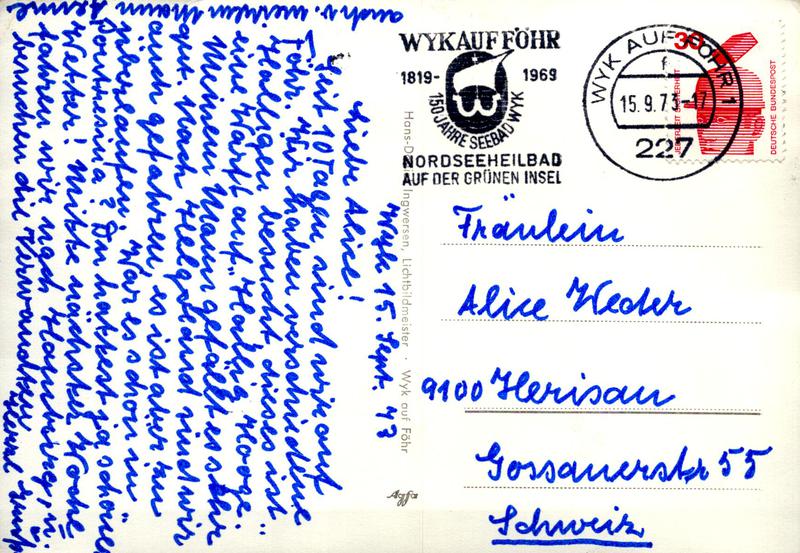 WYK AUF FÖHR
1819- 1969
150 JAHRE SEEBAD WYK
NORDSEEHEILBAD
AUF DER GRÜNEN INSEL
WYK AUF FÖHR 1
f
15.9.73-17
227
30
JEDERZEIT SICHERHEIT
DEUTSCHE BUNDESPOST
Fräulein
Alice Weder
9100 Herisau
Gossauerstr 55
Schweiz
Hans-D Ingwersen, Lichtbildmeister · Wyk auf Föhr
Agfa
Wyk 15. Sept. 73
Liebe Alice!
Seit 10 Tagen sind wir auf
Föhr. Wir haben verschiedene
Halligen besucht, dieses ist
eine Warft auf "Hallig Hooge".
Meinem Mann gefällt es sehr
gut. Nach Helgoland sind wir
auch gefahren, es ist aber zu
überlaufen. War es schön in
? Du hattest ja schönes
Wetter! Mitte nächster Woche
fahren wir nach Hamburg, u.
besuchen die Verwandten. Herzl. Grüße
auch v. meinem Mann